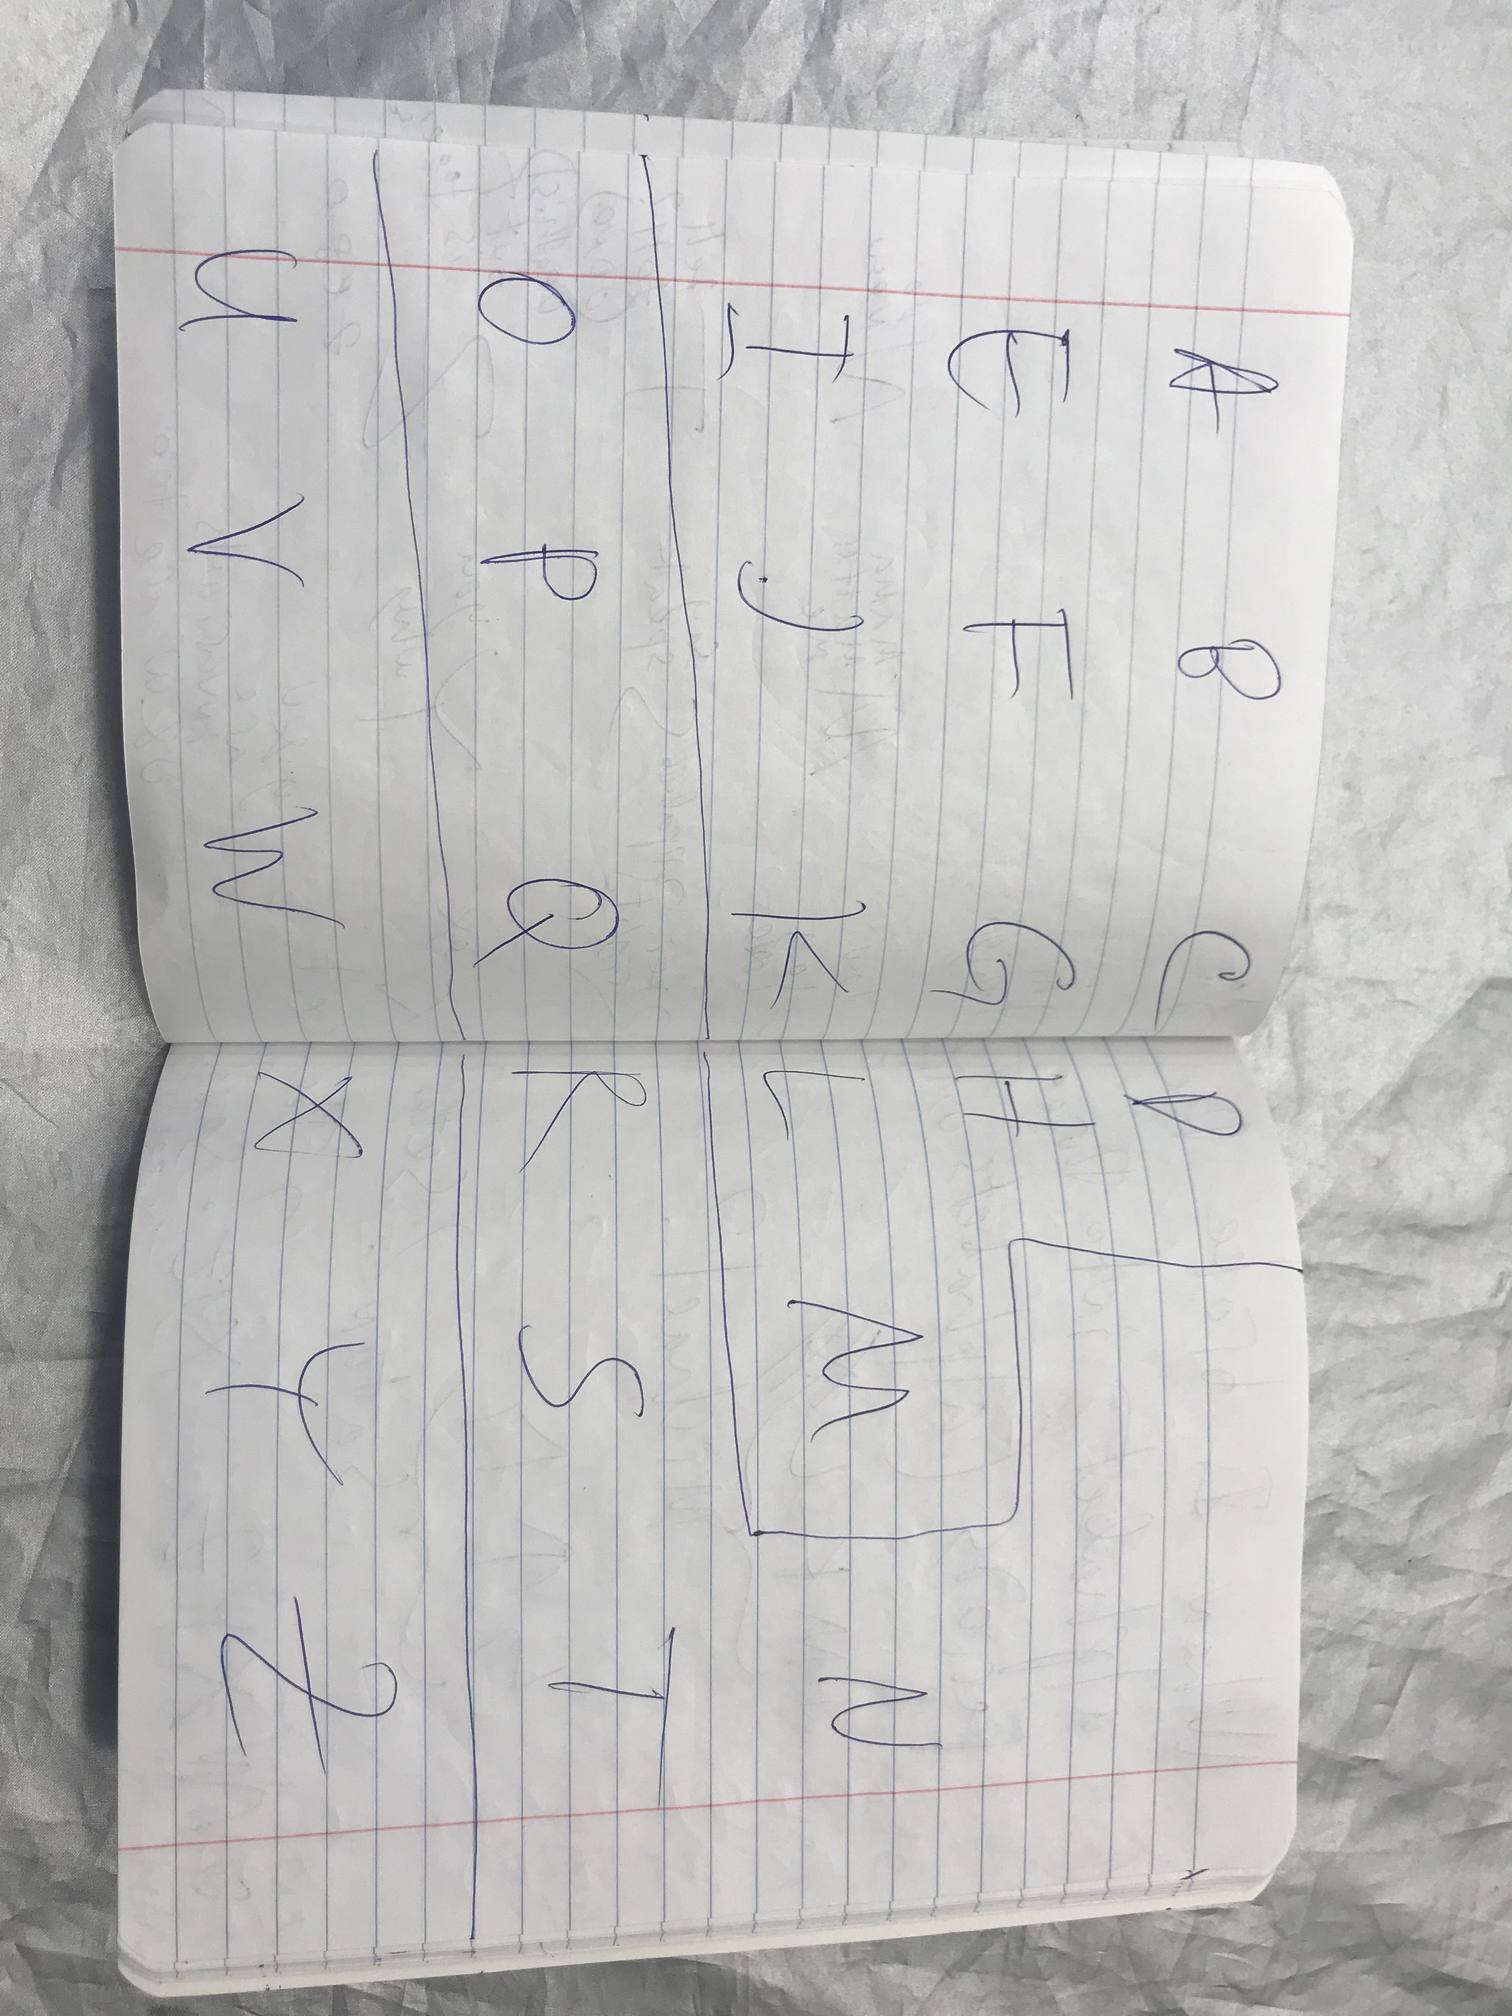 A B C D
E F G H
I J K L M N
O P Q R S T
U V W X Y Z